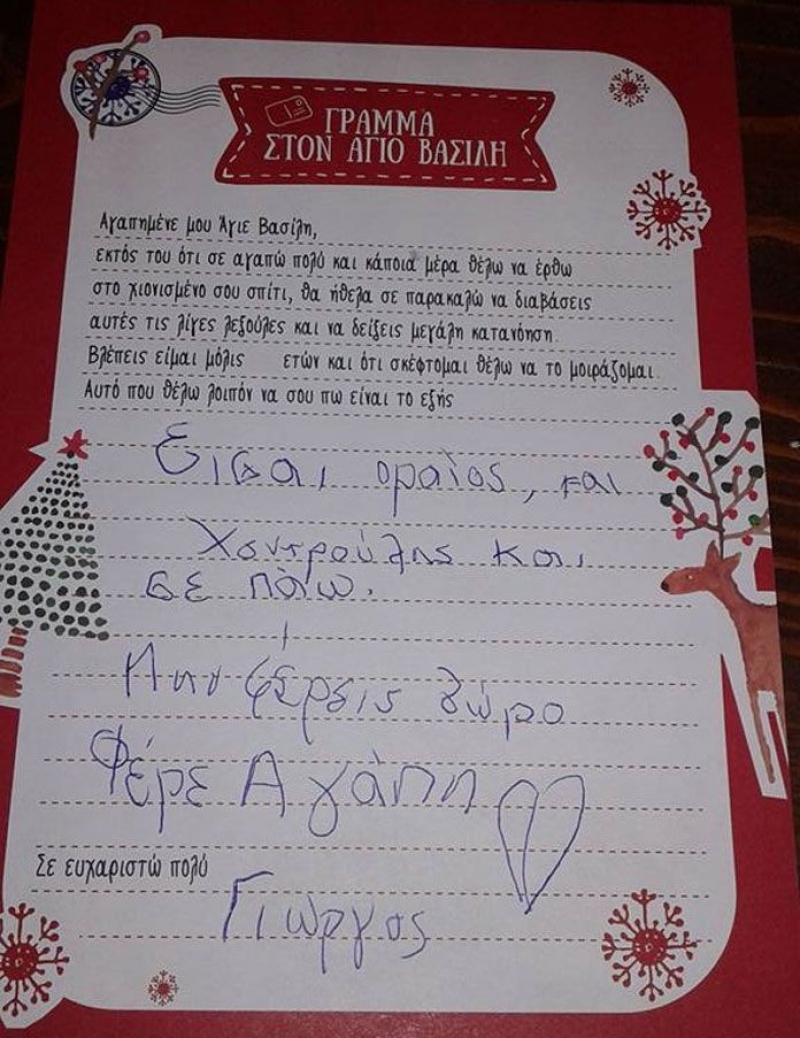 ΓΡΑΜΜΑ
ΣΤΟΝ ΑΓΙΟ ΒΑΣΙΛΗ
Αγαπημένε μου Άγιε Βασίλη,
εκτός του ότι σε αγαπώ πολύ και κάποια μέρα θέλω να έρθω
στο χιονισμένο σου σπίτι, θα ήθελα σε παρακαλώ να διαβάσεις
αυτές τις λίγες λεξούλες και να δείξεις μεγάλη κατανόηση.
Βλέπεις είμαι μόλις ετών και ότι σκέφτομαι θέλω να το μοιράζομαι.
Αυτό που θέλω λοιπόν να σου πω είναι το εξής
Εισαι οραίος, και
Χοντρούλης και
σε πάω.
Μην φέρεις δώρο
Φέρε Αγάπη
Σε ευχαριστώ πολύ
Γιώργος